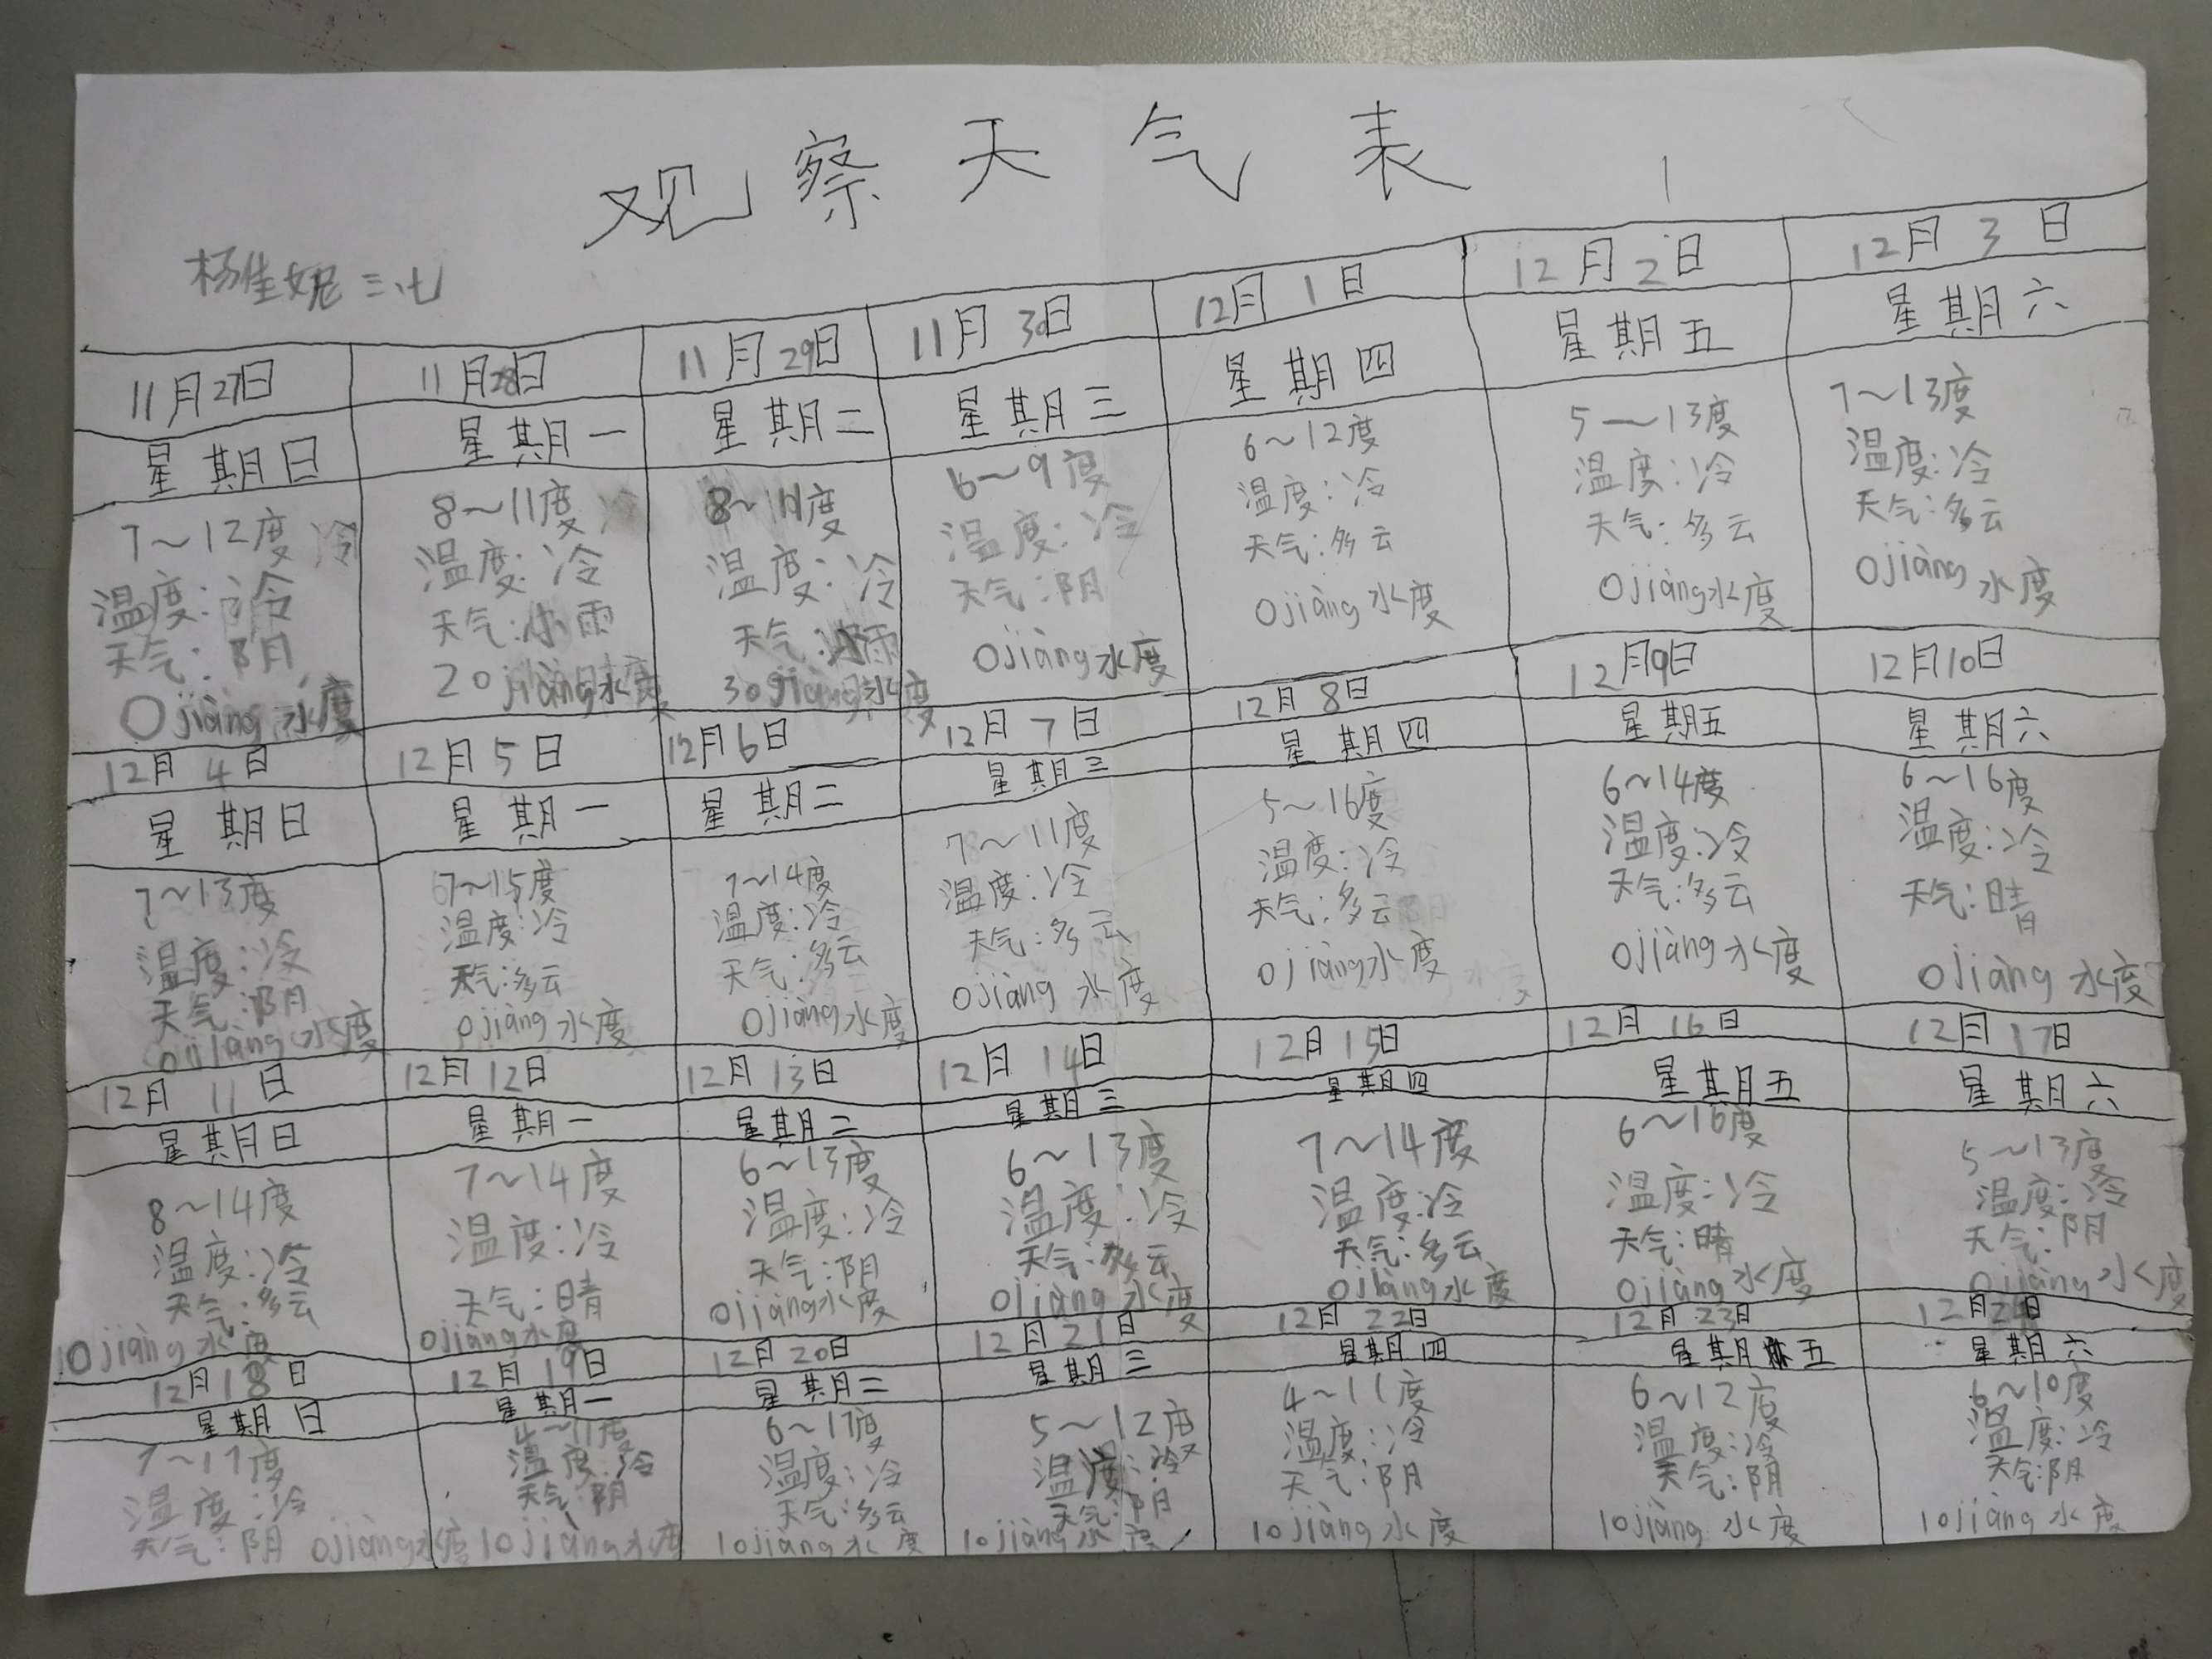 观察天气表
杨佳妮 三.七
11月27日 11月28日 11月29日 11月30日 12月1日 12月2日 12月3日
星期日 星期一 星期二 星期三 星期四 星期五 星期六
7~12度 冷 8~11度 冷 8~11度 6~9度 6~12度 5~13度 7~13度
温度:冷 温度:冷 温度:冷 温度:冷 温度:冷 温度:冷 温度:冷
天气:阴 天气:小雨 天气:小雨 天气:阴 天气:多云 天气:多云 天气:多云
0jiàng水度 20jiàng水度 30jiàng水度 0jiàng水度 0jiàng水度 0jiàng水度 0jiàng水度
12月4日 12月5日 12月6日 12月7日 12月8日 12月9日 12月10日
星期日 星期一 星期二 星期三 星期四 星期五 星期六
7~13度 7~15度 7~14度 7~11度 5~16度 6~14度 6~16度
温度:冷 温度:冷 温度:冷 温度:冷 温度:冷 温度:冷 温度:冷
天气:阴 天气:多云 天气:多云 天气:多云 天气:多云 天气:多云 天气:晴
0jiàng水度 0jiàng水度 0jiàng水度 0jiàng水度 0jiàng水度 0jiàng水度 0jiàng水度
12月11日 12月12日 12月13日 12月14日 12月15日 12月16日 12月17日
星期日 星期一 星期二 星期三 星期四 星期五 星期六
8~14度 7~14度 6~13度 6~13度 7~14度 6~16度 5~13度
温度:冷 温度:冷 温度:冷 温度:冷 温度:冷 温度:冷 温度:冷
天气:多云 天气:晴 天气:阴 天气:多云 天气:多云 天气:晴 天气:阴
10jiàng水度 0jiàng水度 0jiàng水度 0jiàng水度 0jiàng水度 0jiàng水度 0jiàng水度
12月18日 12月19日 12月20日 12月21日 12月22日 12月23日 12月24日
星期日 星期一 星期二 星期三 星期四 星期五 星期六
7~17度 4~11度 6~17度 5~12度 4~11度 6~12度 6~10度
温度:冷 温度:冷 温度:冷 温度:冷 温度:冷 温度:冷 温度:冷
天气:阴 天气:阴 天气:多云 天气:阴 天气:阴 天气:阴 天气:阴
0jiàng水度 10jiàng水度 10jiàng水度 10jiàng水度 10jiàng水度 10jiàng水度 10jiàng水度